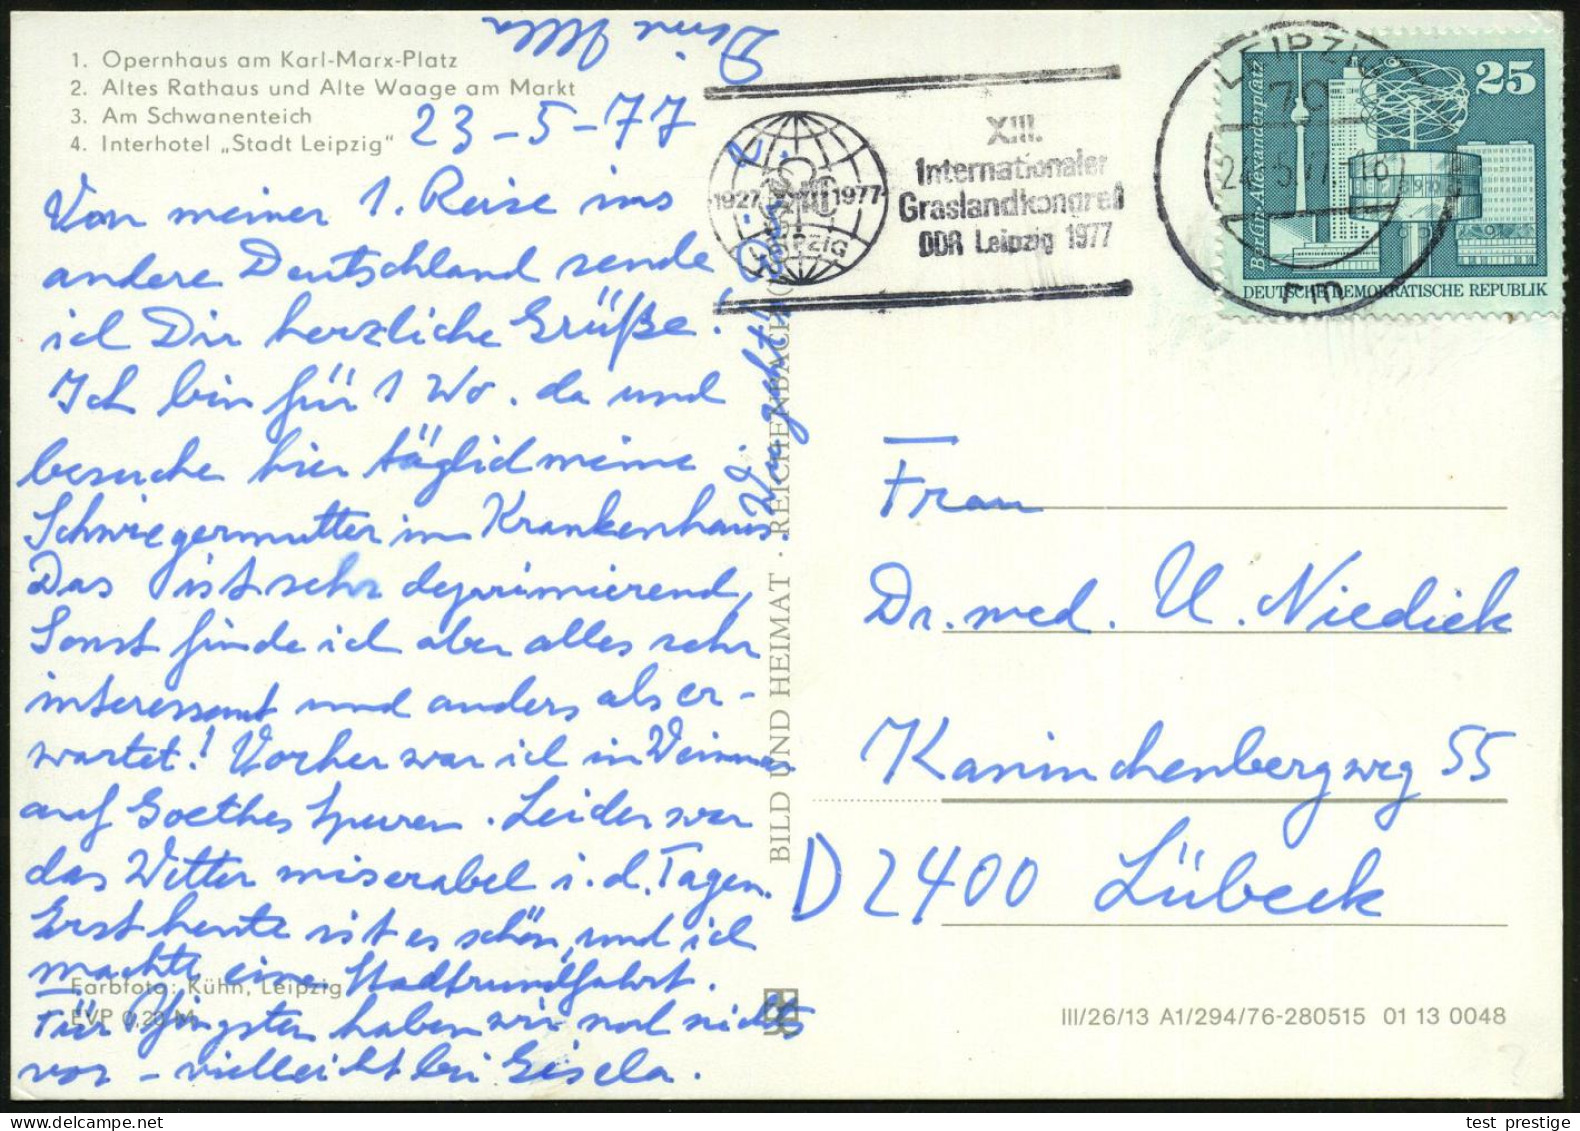 1. Opernhaus am Karl-Marx-Platz
2. Altes Rathaus und Alte Waage am Markt
3. Am Schwanenteich
4. Interhotel „Stadt Leipzig“
23-5-77
Von meiner 1. Reise ins
andere Deutschland sende
ich Dir herzliche Grüße.
Ich bin für 1 Wo. da und
besuche hier täglich meine
Schwiegermutter im Krankenhaus.
Das ist sehr deprimierend,
Sonst finde ich aber alles sehr
interessant und anders als er-
wartet! Vorher war ich in Weimar,
auf Goethes Spuren. Leider war
das Wetter miserabel i. d. Tagen.
Erst heute ist es schön, und ich
machte eine Stadtrundfahrt.
Für Pfingsten haben wir noch nichts
vor – vielleicht bei Gisela.
Wie geht's
Deine
Farbfoto: Kühn, Leipzig
EVP 0,20 M
BILD UND HEIMAT · REICHENBACH
1927 1977
LEIPZIG
XIII.
Internationaler
Graslandkongreß
DDR Leipzig 1977
LEIPZIG
70
Berlin-Alexanderplatz
25
DEUTSCHE DEMOKRATISCHE REPUBLIK
Frau
Dr. med. U. Niedick
Kaninchenbergweg 55
D 2400 Lübeck
III/26/13 A1/294/76-280515 01 13 0048
test prestige